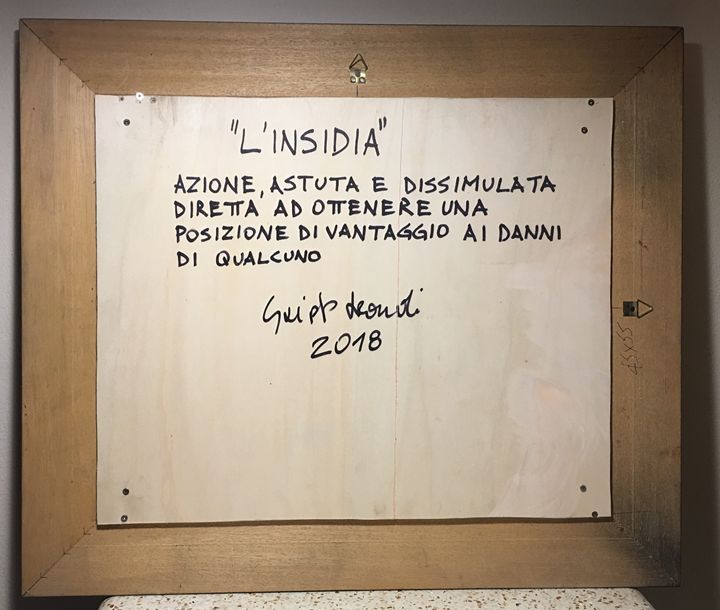 "L'INSIDIA"
AZIONE, ASTUTA E DISSIMULATA
DIRETTA AD OTTENERE UNA
POSIZIONE DI VANTAGGIO AI DANNI
DI QUALCUNO
2018
45x55